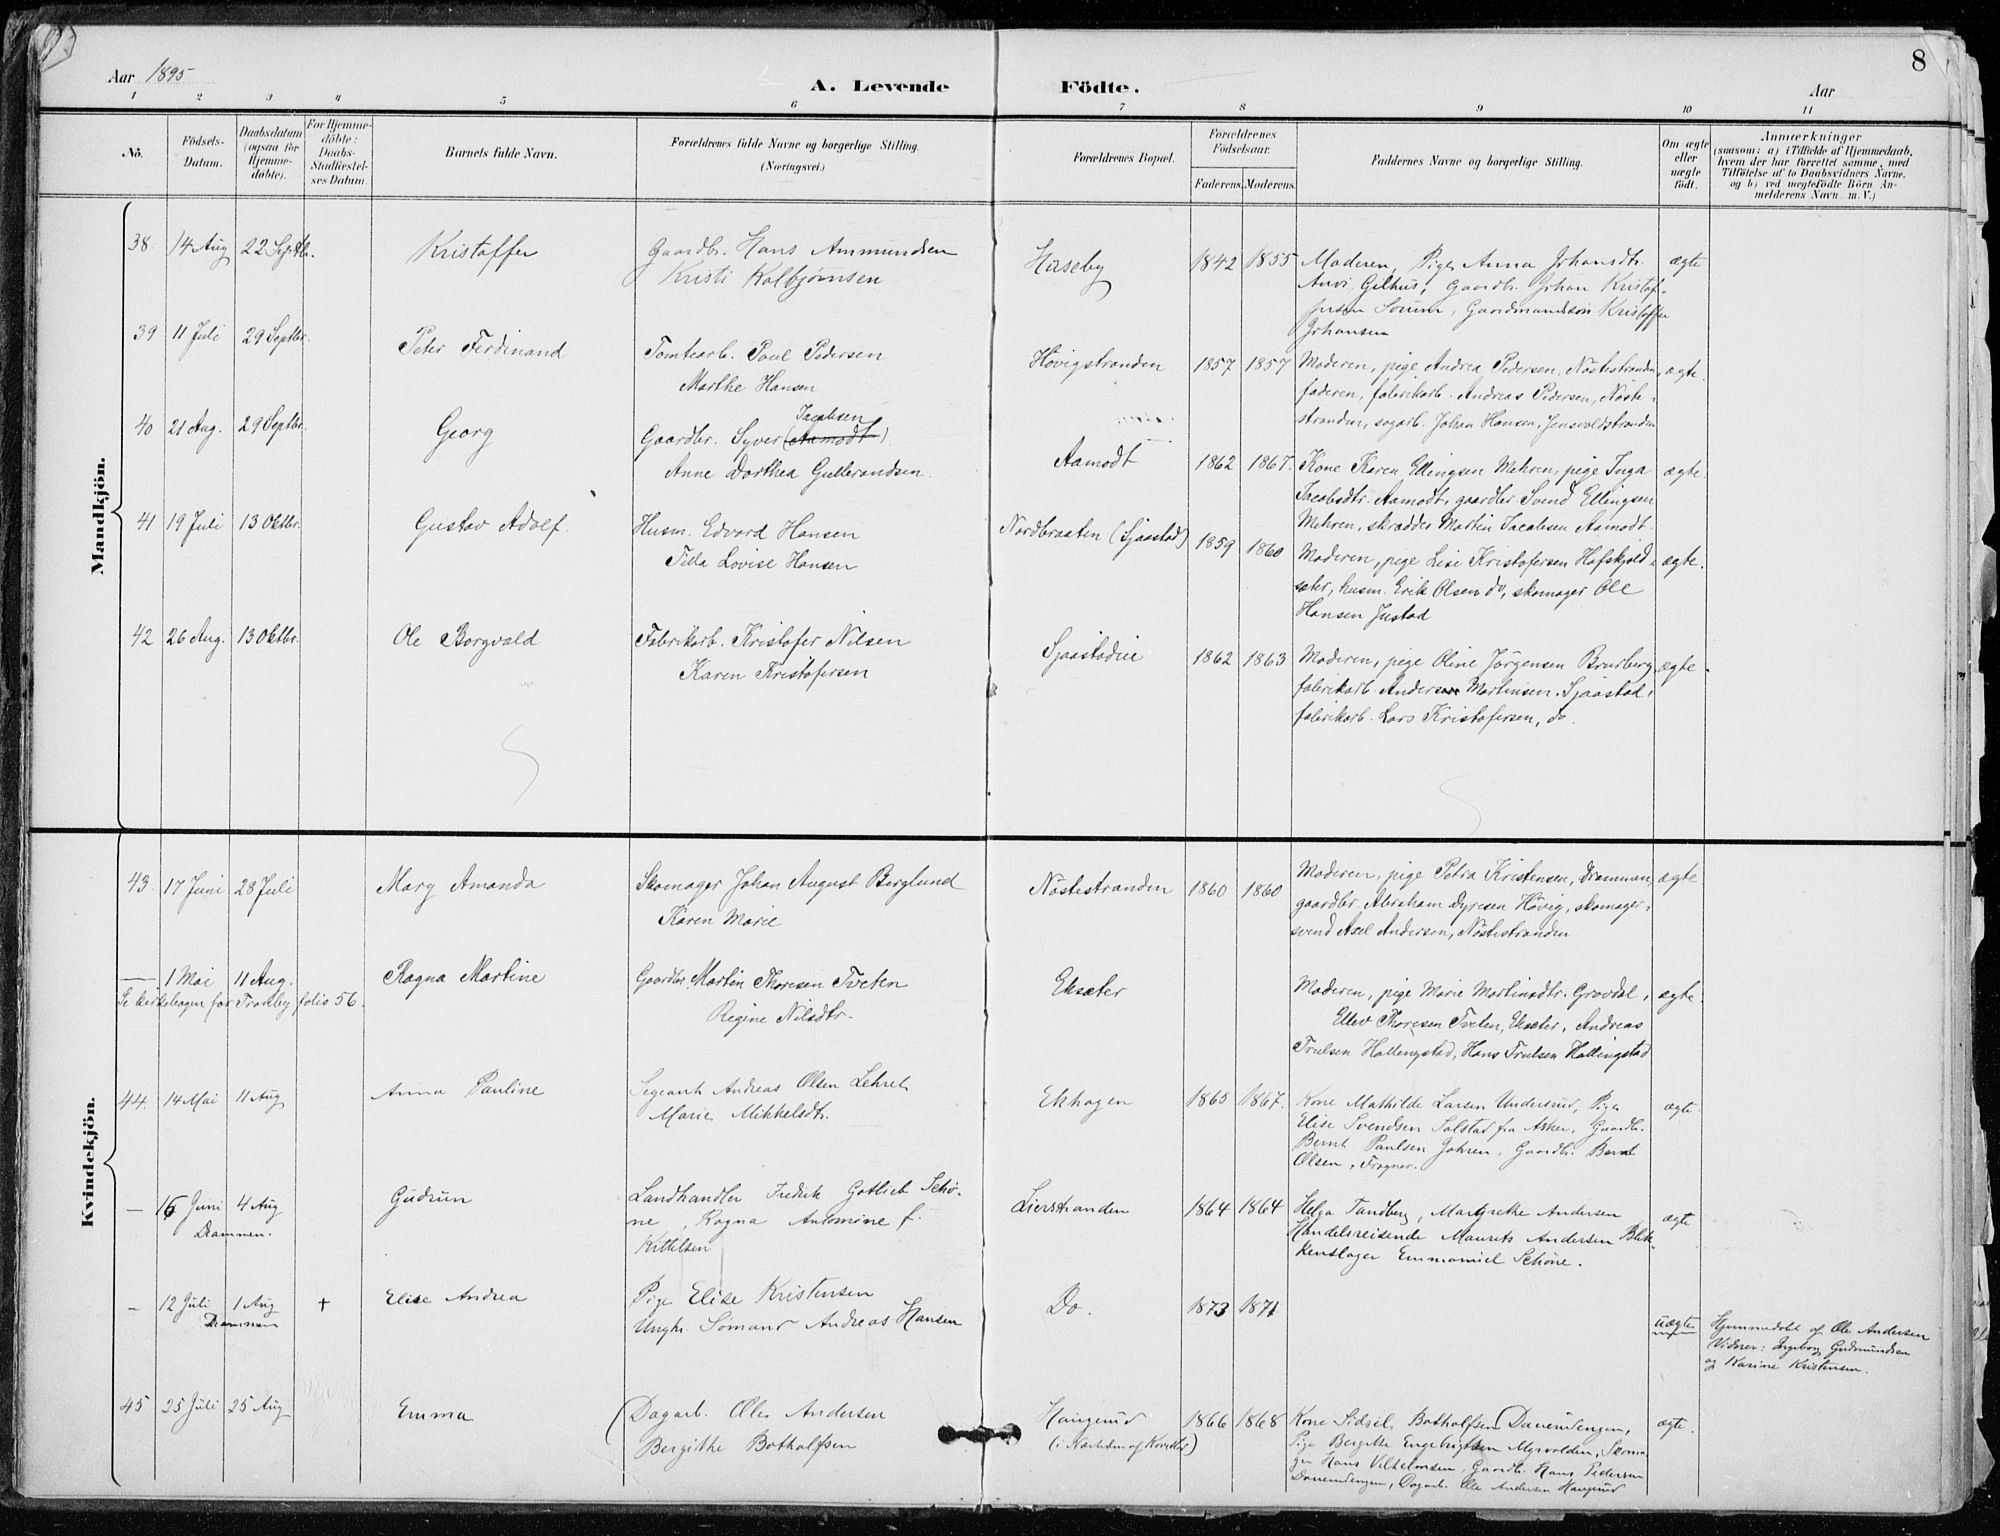 8
Aar 1895
A. Levende Födte.
Aar
1 2 3 4 5 6 7 8 9 10 11
Nö.
Födsels-Datum.
Daabsdatum (ogsaa for Hjemmedöbte).
For Hjemmedöbte: Daabs-Stadfæstelses Datum.
Barnets fulde Navn.
Forældrenes fulde Navne og borgerlige Stilling.
(Næringsvei.)
Forældrenes Bopæl.
Forældrenes Födselsaar.
Faderens. Moderens.
Faddernes Navne og borgerlige Stilling.
Om ægte eller uægte födt.
Anmærkninger
(saasom: a) i Tilfælde af Hjemmedaab, hvem der har forrettet samme, med Tilföielse af to Daabsvidners Navne, og b) ved uægtefödte Börn Anmelderens Navn m. V.)
Mandkjön.
38. 14 Aug 22 Septbr. Kristoffer Gaardbr. Hans Ammundsen
Kristi Kolbjørnsen
Huseby 1842 1855 Moderen, Pige Anna Johansdtr.
Gilhus, Gaardbr. Johan Kristof-
fersen Sørum, Gaardmandssøn Kristoffer
Johansen
ægte
39 11 Juli 29 Septbr. Peter Ferdinand Tomtearb. Paul Pedersen
Marthe Hansen
Hövigstranden 1857 1857 Moderen, pige Andrea Pedersen, Nöstestranden,
faderen, fabrikarb. Andreas Pedersen, Nöste-
stranden, sagarb. Johan Hansen, Jensvoldstranden
ægte.
40 21 Aug. 29 Septbr. Georg Gaardbr. Syver (Aamodt) Jacobsen
Anne Dorthea Gulbrandsen.
Aamodt 1862 1867. Kone Karen Ellingsen Mehren, pige Inga
Jacobsdtr. Aamodt, gaardbr Svend Ellingsen
Mehren, skrædder Martin Jacobsen Aamodt.
ægte.
41 19 Juli 13 Oktbr. Gustav Adolf. Husm. Edvard Hansen
Tilda Lovise Hansen
Nordbraaten (Sjaastad) 1859 1860 Moderen, pige Lise Kristofersen Hafskjold-
sæter, husm. Erik Olsen do, skomager Ole
Hansen Justad
ægte.
42 26 Aug. 13 Oktbr. Ole Borgvald Fabrikarb. Kristofer Nilsen
Karen Kristofersen
Sjaastadeie 1862 1863 Moderen, pige Oline Jørgensen Brurberg,
fabrikarb. Anders Martinsen, Sjaastad,
fabrikarb. Lars Kristofersen, do.
ægte.
Kvindekjön.
43. 17 Juni 28 Juli Mary Amanda Skomager Johan August Berglund
Karen Marie
Nöstestranden 1860 1860 Moderen, pige Petra Kristensen, Drammen,
gaardbr. Abraham Dyresen Hövig, skomager-
svend Axel Andersen, Nöstestranden
ægte
— 1 Mai 11 Aug. Ragna Martine Gaardbr. Martin Thoresen Tveten
Se kirkebogen for Tranby folio 56.
Regine Nilsdtr.
Eksæter Moderen, pige Marie Martinsdtr. Grovdal,
Ellev Thoresen Tveten, Eksæter, Andreas
Trulsen Hallingstad, Hans Trulsen Hallingstad
ægte.
44. 14 Mai 11 Aug Anna Pauline Sergeant Andreas Olsen Lehret
Marie Mikkelsdtr.
Ekhagen 1865 1867. Kone Mathilde Larsen Undersrud, Pige
Elise Svendsen Solstad fra Asker, Gaardbr.
Bernt Paulsen Jahren, Gaardbr. Bernt
Olsen, Frogner.
ægte.
— 16 Juni 4 Aug Gudrun Landhandler Fredrik Gotlieb Schö-
Drammen.
ne, Ragna Antomine f.
Kittelsen
Lierstranden 1864 1864 Helga Tandberg, Margrethe Andersen
Handelsreisende Maurits Andersen Blik-
kenslager Emmanuel Schöne.
ægte
— 12 Juli 1 Aug + Elise Andrea Pige Elise Kristensen
Drammen
Ungkr. Sömand Andreas Hansen
Do. 1873 1871
uægte
Hjemmedöbt af Ole Andersen
Vidner: Ingeborg Gudmundsen
og Karine Kristensen.
45 25 Juli 25 Aug Emma (Dagarb. Ole Andersen
Bergithe Botholfsen
Haugerud
1866 1868 Kone Sidsel Botholfsen
Pige Bergitte Engebrigtsen Myrvolden, Skoma-
ger Hans Vilhelmsen, Gaardbr. Hans Pedersen
Dagarb. Ole Andersen Haugerud
ægte.